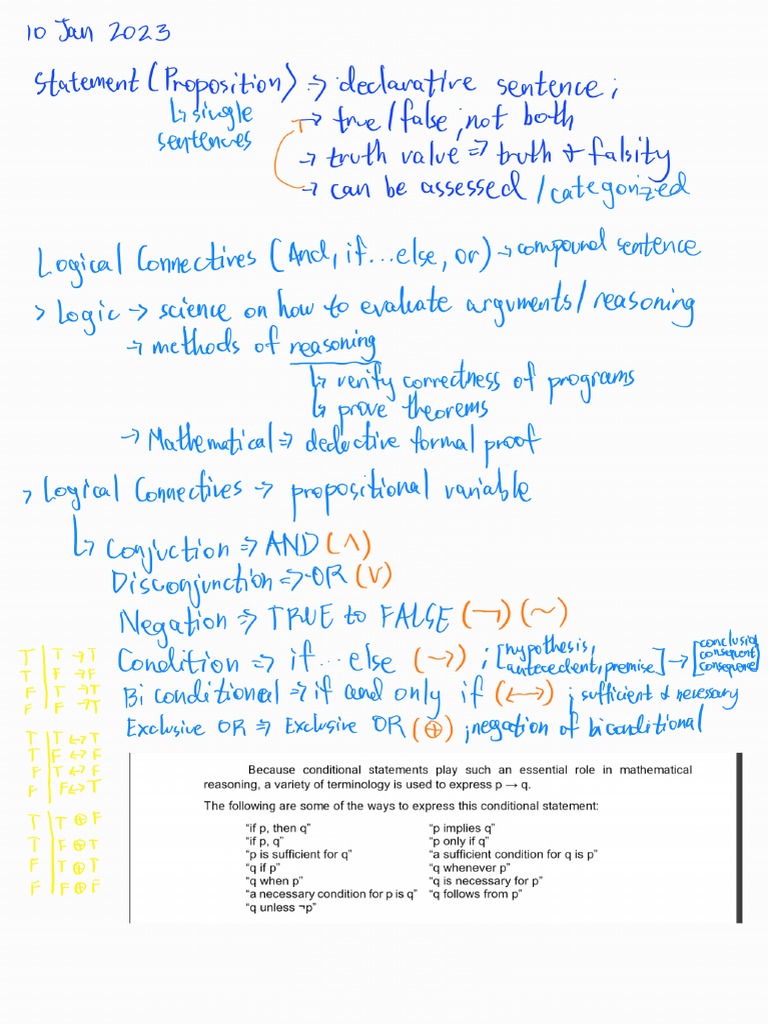 10 Jan 2023
Statement (Proposition) → declarative sentence;
↳ single sentences
→ true/false; not both
→ truth value ⇒ truth & falsity
→ can be assessed / categorized
Logical Connectives (And, if...else, or) → compound sentence
> Logic → science on how to evaluate arguments/reasoning
→ methods of reasoning
↳ verify correctness of programs
↳ prove theorems
→ Mathematical ⇒ deductive formal proof
> Logical Connectives → propositional variable
↳ Conjuction ⇒ AND (∧)
Disconjunction ⇒ OR (∨)
Negation ⇒ TRUE to FALSE (¬) (~)
Condition ⇒ if...else (→) ; [hypothesis, antecedent, premise] → [conclusion
consequent
consequence]
Bi conditional ⇒ if and only if (↔) ; sufficient & necessary
Exclusive OR ⇒ Exclusive OR (⊕) ; negation of biconditional
T | T → T
T | F → F
F | T → T
F | F → T
T | T ↔ T
T | F ↔ F
F | T ↔ F
F | F ↔ T
T | T ⊕ F
T | F ⊕ T
F | T ⊕ T
F | F ⊕ F
Because conditional statements play such an essential role in mathematical
reasoning, a variety of terminology is used to express p → q.
The following are some of the ways to express this conditional statement:
"if p, then q" "p implies q"
"if p, q" "p only if q"
"p is sufficient for q" "a sufficient condition for q is p"
"q if p" "q whenever p"
"q when p" "q is necessary for p"
"a necessary condition for p is q" "q follows from p"
"q unless ¬p"